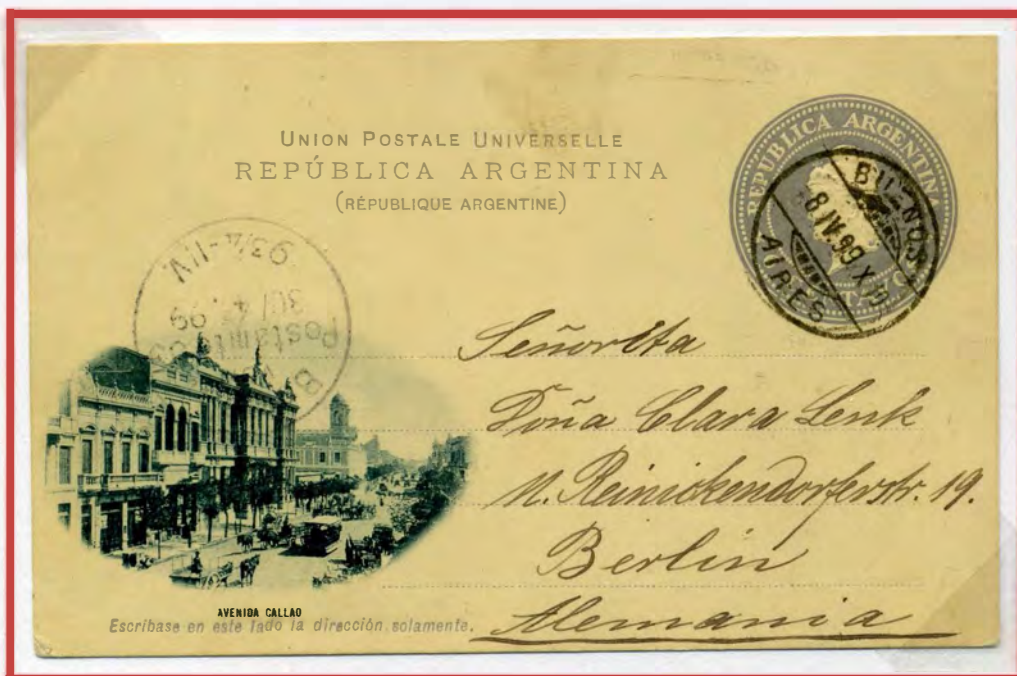 UNION POSTALE UNIVERSELLE
REPÚBLICA ARGENTINA
(RÉPUBLIQUE ARGENTINE)
REPUBLICA ARGENTINA
BUENOS
8.IV.99
AIRES
93/4-11V.
30/4.99
Postamt
B
Señorita
Doña Clara Lenk
N. Reinickendorferstr. 19.
Berlin
Alemania
AVENIDA CALLAO
Escríbase en este lado la dirección solamente.